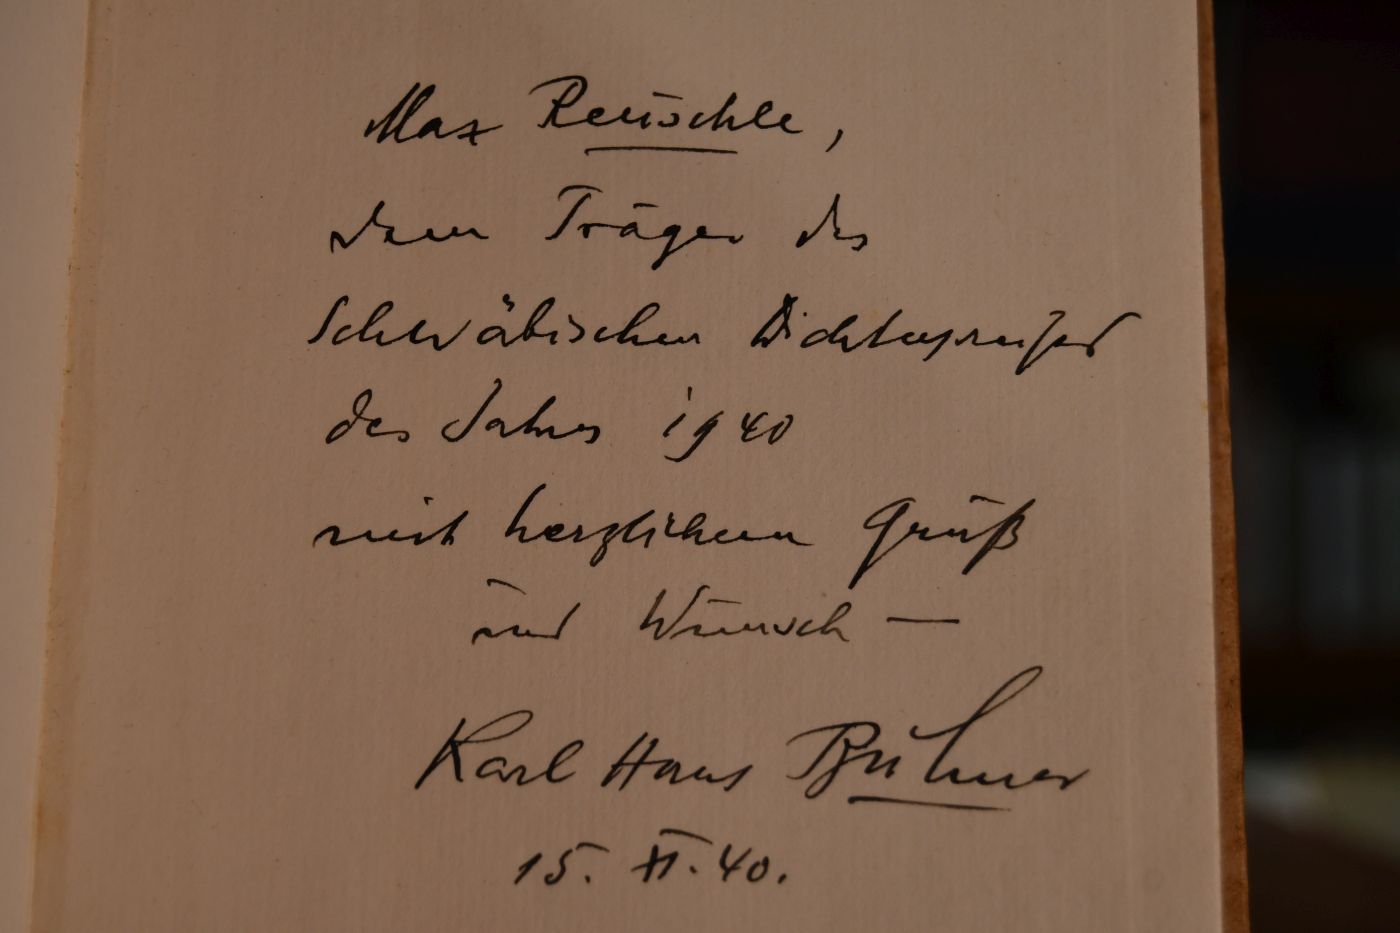 Max Reuschle,
dem Träger des
Schwäbischen Dichterpreises
des Jahres 1940
mit herzlichem Gruß
und Wunsch —
Karl Hans Bühner
15. XI. 40.